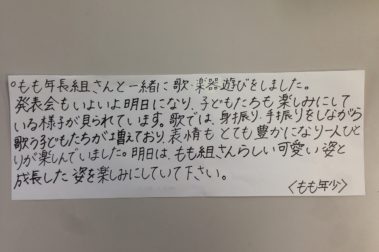 ○もも年長組さんと一緒に歌・楽器遊びをしました。
発表会もいよいよ明日になり、子どもたちも楽しみにして
いる様子が見られています。歌では、身振り、手振りをしながら
歌う子どもたちが増えており、表情もとても豊かになり一人ひと
りが楽しんでいました。明日は、もも組さんらしい可愛い姿と
成長した姿を楽しみにしていて下さい。
〈もも年少〉